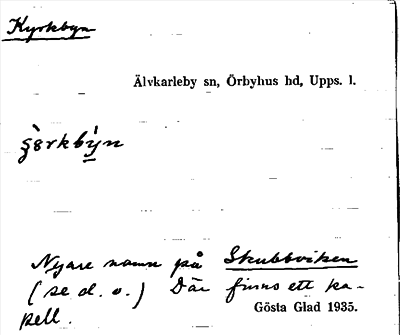 Kyrkbyn
Älvkarleby sn, Örbyhus hd, Upps. l.
Nyare namn på Skubbviken
(se d. o.) Där finns ett ka-
pell.
Gösta Glad 1935.